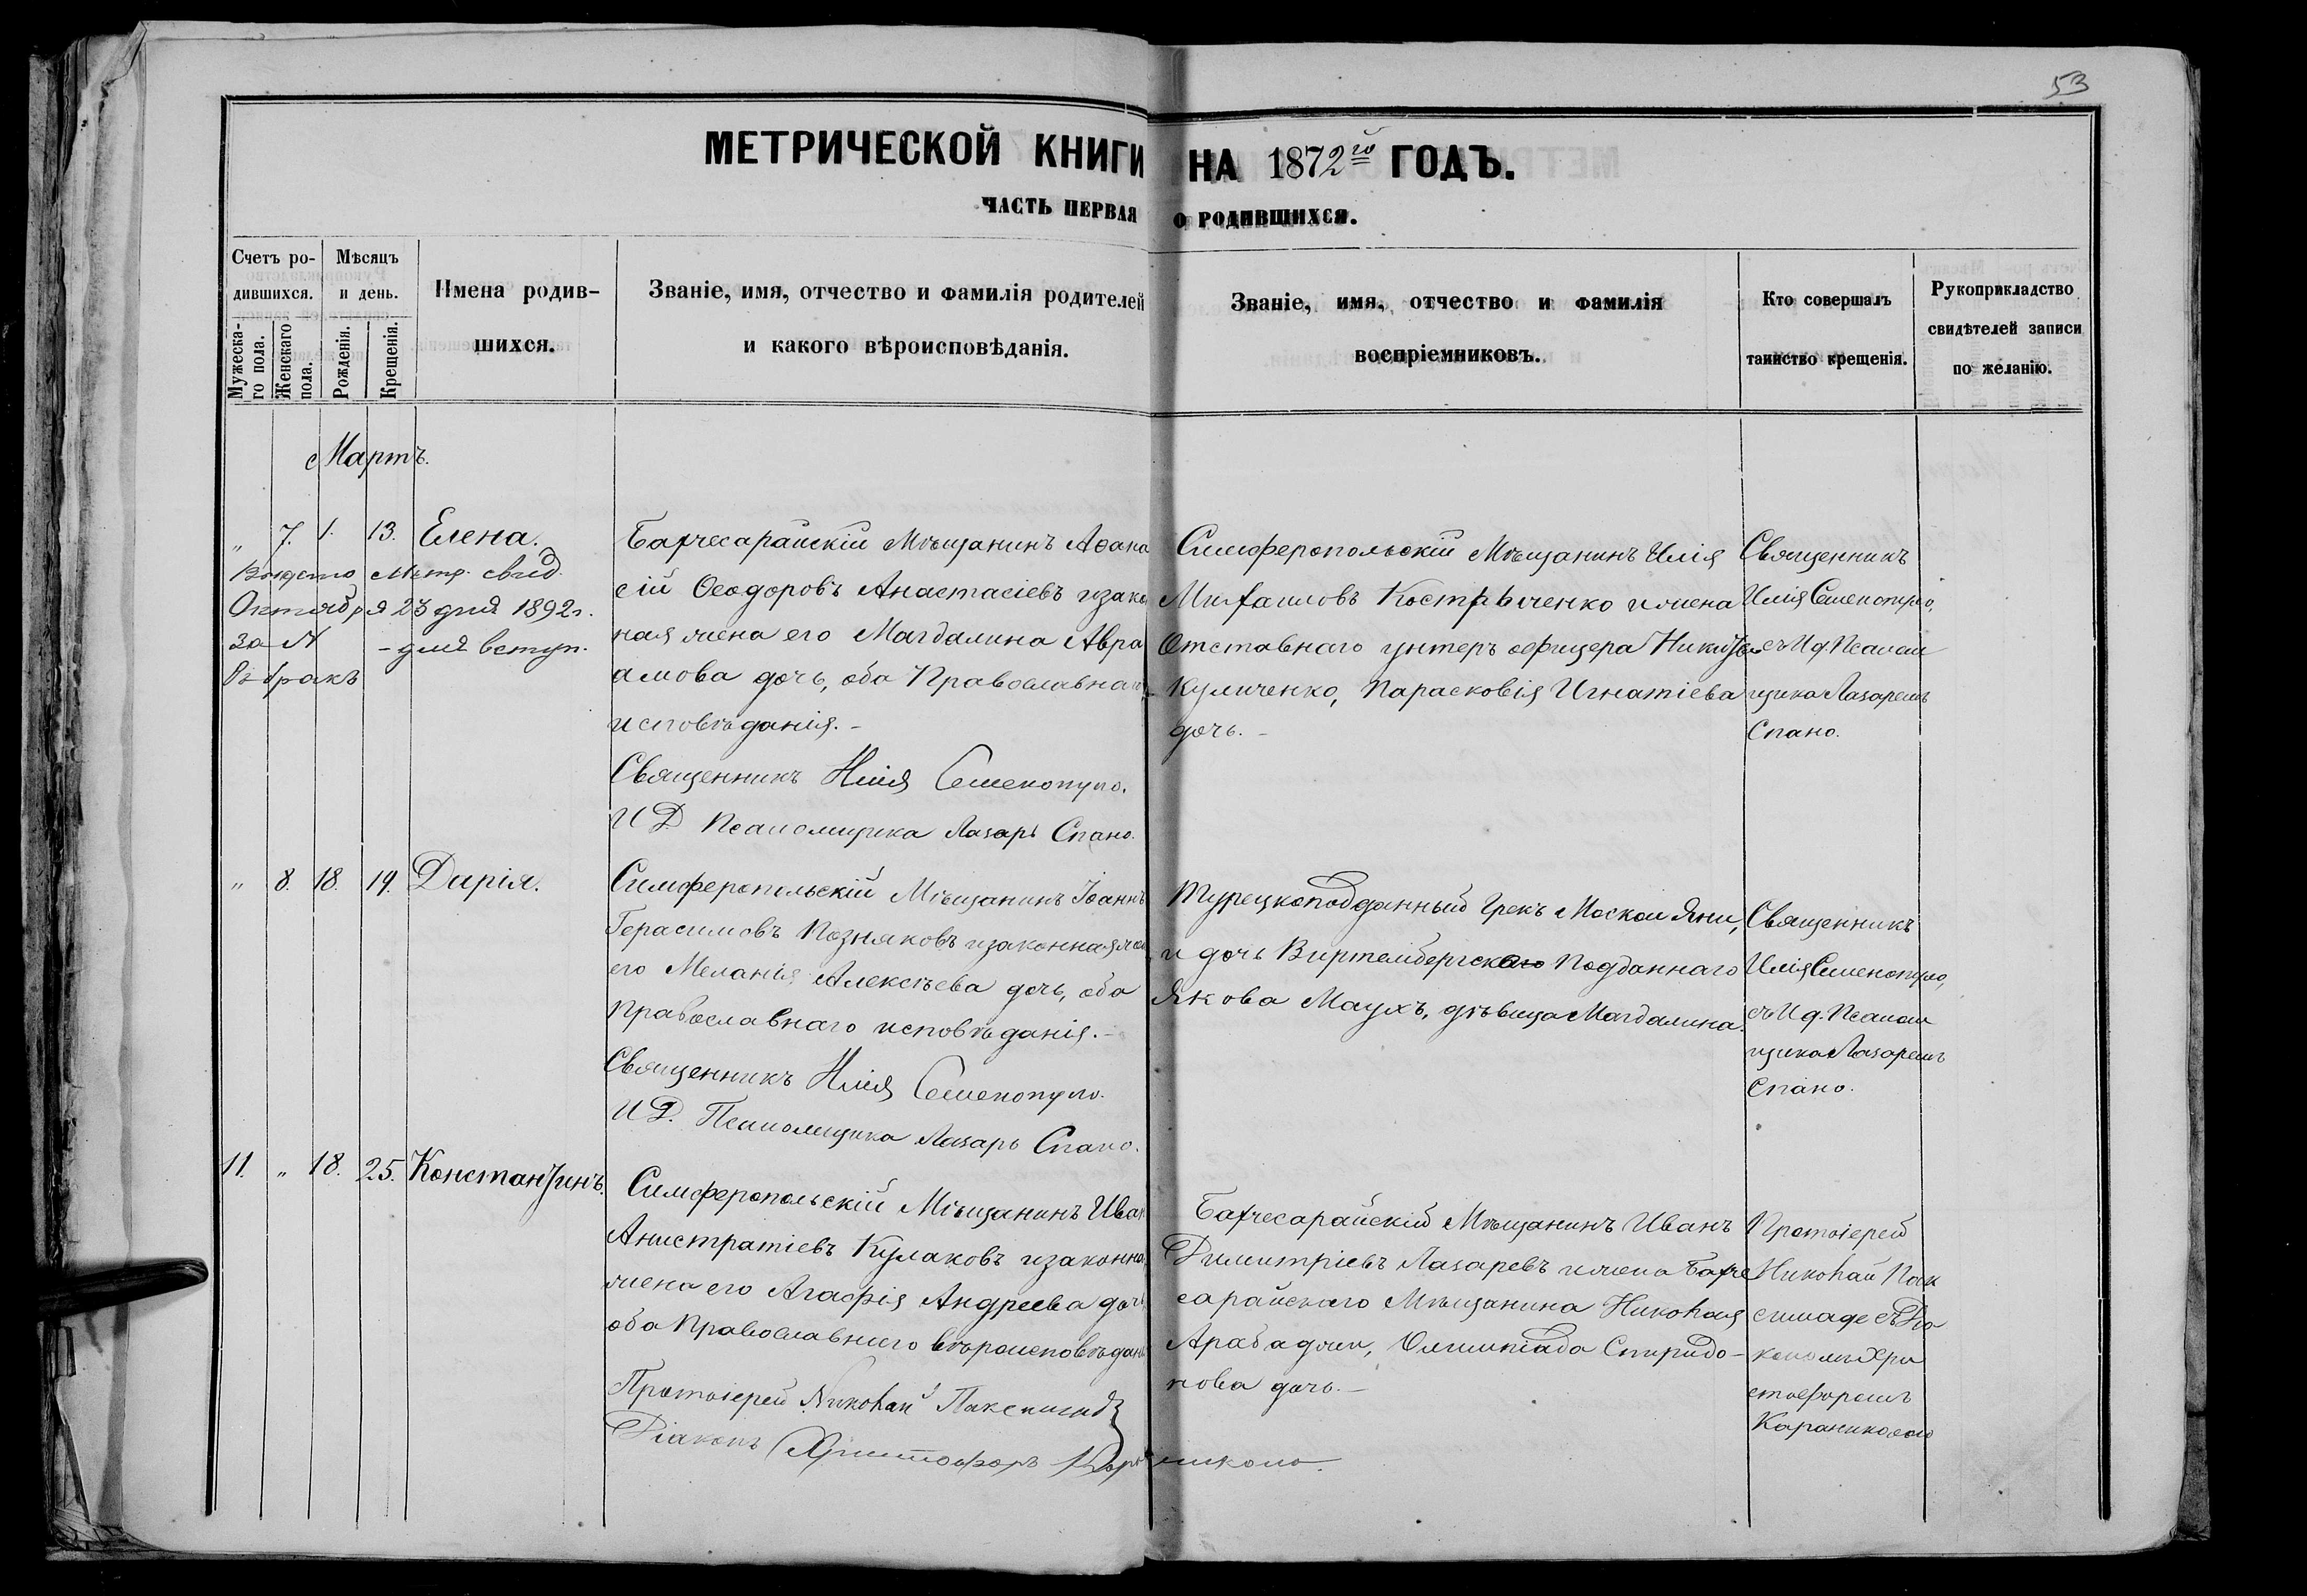 53
МЕТРИЧЕСКОЙ КНИГИ НА 1872го ГОДЪ.
ЧАСТЬ ПЕРВАЯ О РОДИВШИХСЯ.
Счетъ ро-
дившихся.
Мужеска-
го пола.
Женскаго
пола.
Мѣсяцъ
и день.
Рожденія.
Крещенія.
Имена родив-
шихся.
Званіе, имя, отчество и фамилія родителей
и какого вѣроисповѣданія.
Званіе, имя, отчество и фамилія
воспріемниковъ.
Кто совершалъ
таинство крещенія.
Рукоприкладство
свидѣтелей записи
по желанію.
Мартъ.
„ 7. 1. 13. Елена.
Выдано метр. свид.
Октября 23 дня 1892 г.
за N - для вступ.
въ бракъ
Бахчесарайскій Мѣщанинъ Аѳана
сій Ѳеодоровъ Анастасіевъ и зако
ная жена его Магдалина Авра
амова дочь, оба Православнаго
исповѣданія. -
Священникъ Илія Семенопуло.
И Д Псаломщика Лазарь Спано.
Симферопольскій Мѣщанинъ Илія
Михаиловъ Костриченко и жена
Отставнаго унтеръ офицера Никиты
Куличенко, Парасковія Игнатіева
дочь. -
Священникъ
Илія Семенопуло,
съ И д. Псалом
щика Лазаремъ
Спано.
„ 8. 18. 19. Дарія.
Симферопольскій Мѣщанинъ Іоаннъ
Герасимовъ Позняковъ и законная жен
его Меланія Алексѣева дочь, оба
Православнаго исповѣданія. -
Священникъ Илія Семенопуло.
И Д. Псаломщика Лазарь Спано.
Турецкоподданный Грекъ Москои Яни,
и дочь Виртембергскаго Подданнаго
Якова Маухъ, дѣвица Магдалина.
Священникъ
Илія Семенопуло,
съ И д. Псалом
щика Лазаремъ
Спано.
11. „ 18. 25. Константинъ.
Симферопольскій Мѣщанинъ Иван
Анистратіевъ Кулаковъ и законна
жена его Агафія Андреева дочь
оба Православнаго вѣроисповѣдан
Протоіерей Николай Паксимаде
Діаконъ Христофоръ Караниколо.
Бахчесарайскій Мѣщанинъ Иванъ
Димитріевъ Лазаревъ и жена Бахче
сарайскаго Мѣщанина Николая
Арабаджи, Олимпіада Спиридо-
нова дочь. -
Протоіерей
Николай Пак
симаде съ Діа
кономъ Хри
стофоромъ
Караниколо